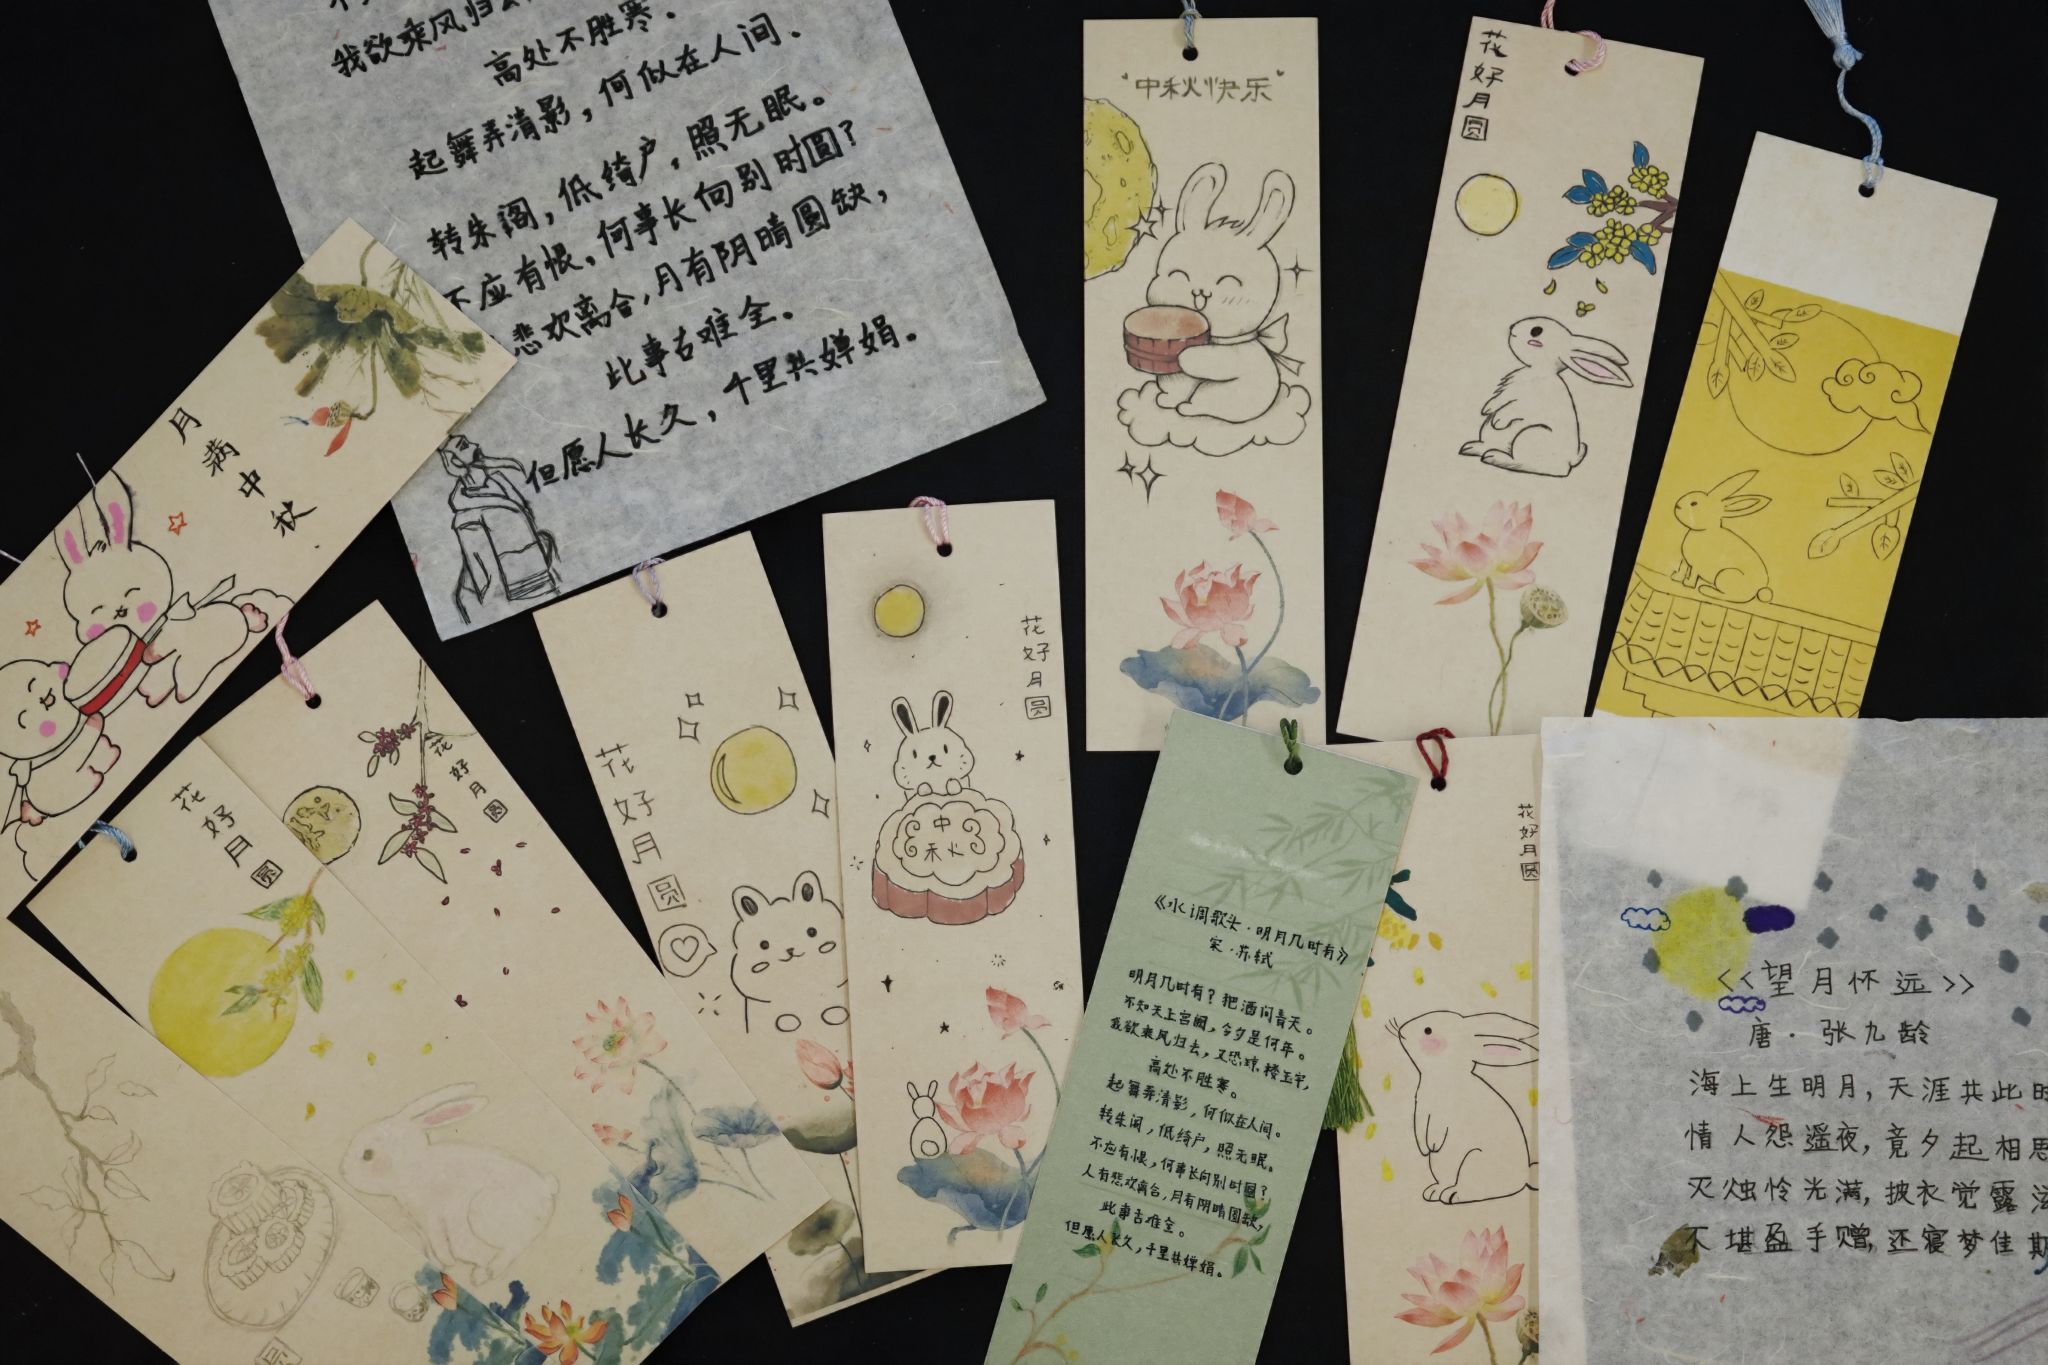 我欲乘风归
高处不胜寒.
起舞弄清影,何似在人间.
转朱阁,低绮户,照无眠。
不应有恨.何事长向别时圆?
悲欢离合,月有阴晴圆缺,
此事古难全。
但愿人长久,千里共婵娟。
月满中秋
中秋快乐
花好月圆
花好月圆
花好月圆
花好月圆
花好月圆
中秋
花好月圆
《水调歌头·明月几时有》
宋·苏轼
明月几时有?把酒问青天。
不知天上宫阙,今夕是何年。
我欲乘风归去,又恐琼楼玉宇,
高处不胜寒。
起舞弄清影,何似在人间。
转朱阁,低绮户,照无眠。
不应有恨,何事长向别时圆?
人有悲欢离合,月有阴晴圆缺,
此事古难全。
但愿人长久,千里共婵娟。
<<望月怀远>>
唐·张九龄
海上生明月,天涯共此时
情人怨遥夜,竟夕起相思
灭烛怜光满,披衣觉露滋
不堪盈手赠,还寝梦佳期
圆